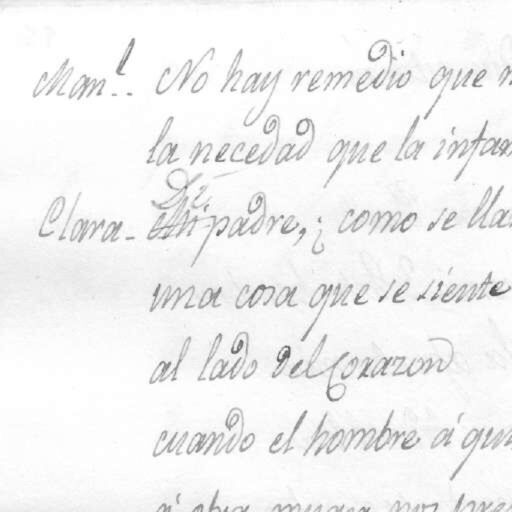 Man.l No hay remedio que
la necedad que la
Di
Clara - Mi padre, ¿ como se
una cosa que se siente
al lado del Corazon
cuando el hombre á
á otra muger nos